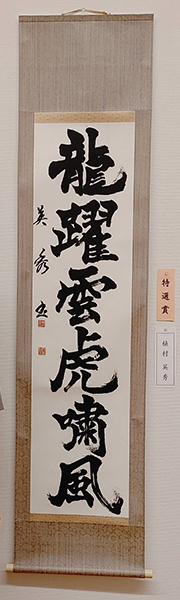 龍躍雲虎嘯風
英秀書
特選賞
植村 英秀